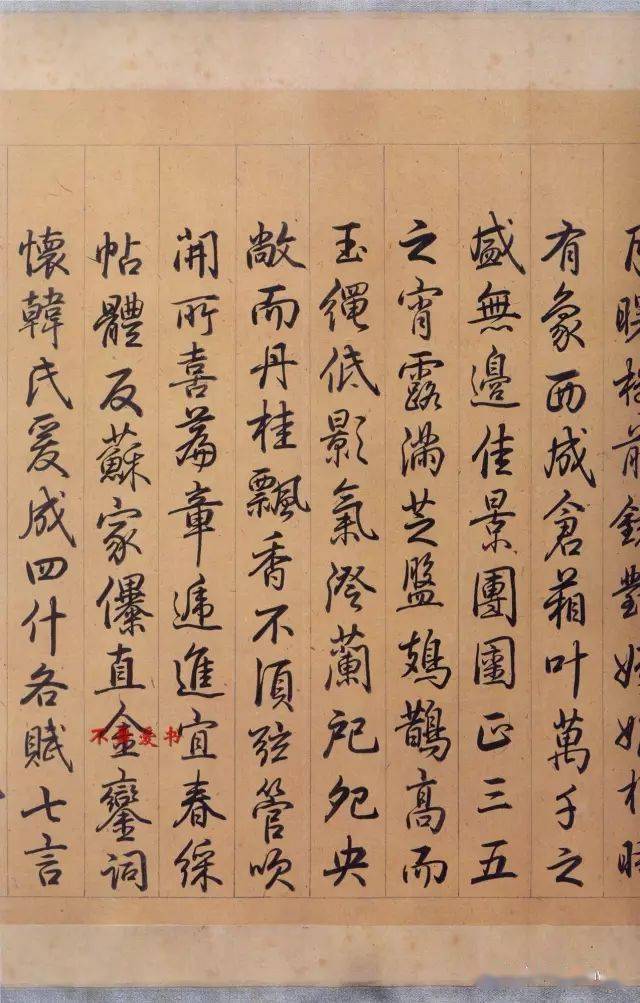 有象西成倉箱叶萬千之
盛無邊佳景團正三五
之宵露滿芝盤鳷鵲高而
玉繩低影氣澄蘭戺夗央
敞而丹桂飄香不須弦管吹
開所喜篇章遞進宜春綵
帖體反蘇家儤直金鑾詞
懷韓氏爰成四什各賦七言